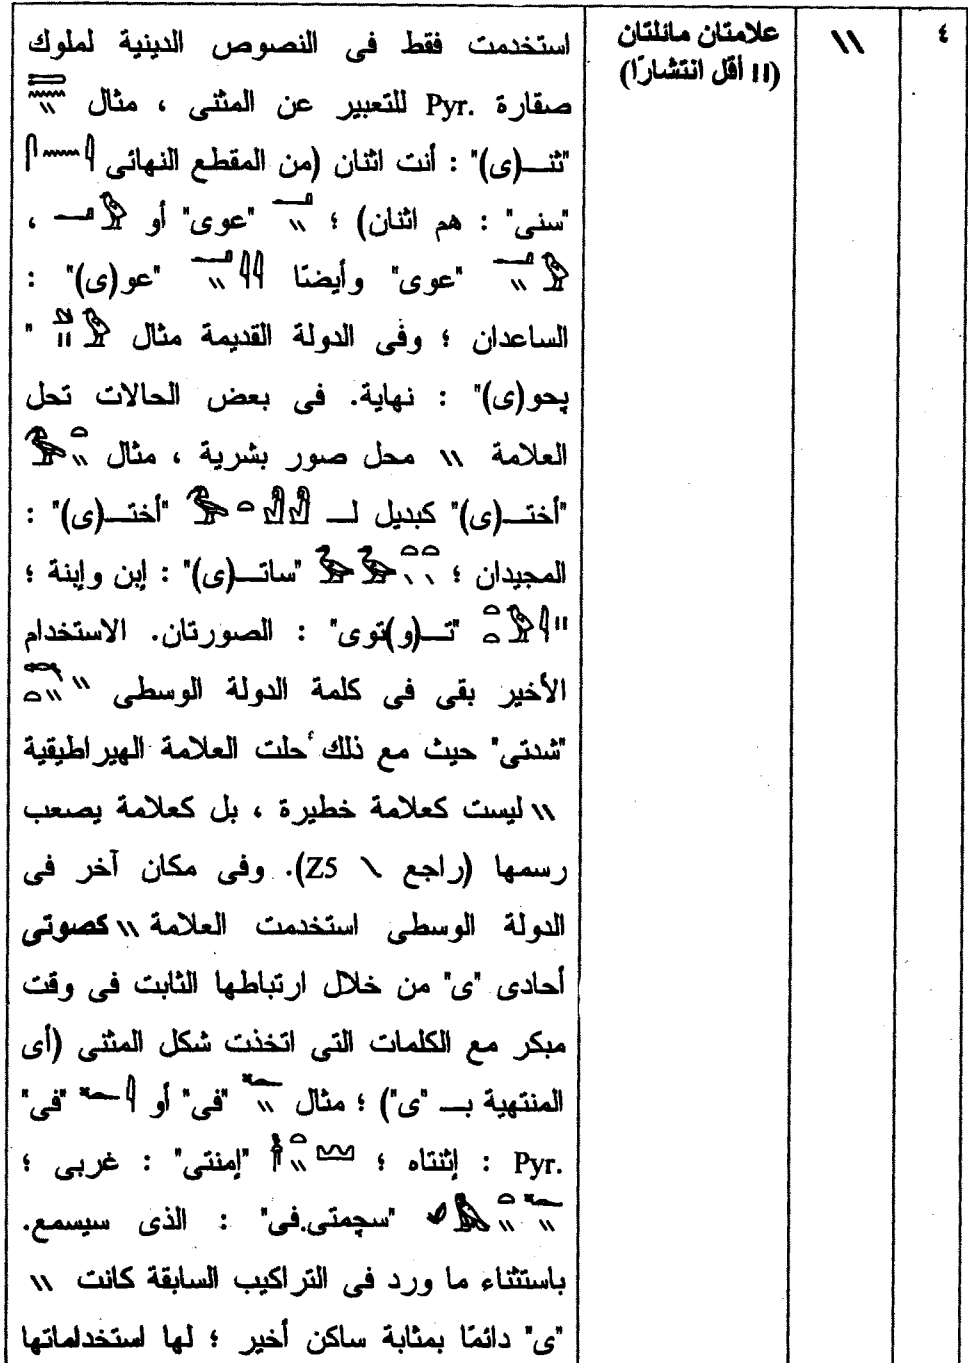 ٤
\\
علامتان مائلتان
(II أقل انتشارًا)
استخدمت فقط فى النصوص الدينية لملوك
صقارة Pyr. للتعبير عن المثنى ، مثال
"ثنــ(ى)" : أنت اثنان (من المقطع النهائى
"سنى" : هم اثنان) ؛ "عوى" أو ،
"عوى" وأيضًا "عو(ى)" :
الساعدان ؛ وفى الدولة القديمة مثال "
پحو(ى)" : نهاية. فى بعض الحالات تحل
العلامة \\ محل صور بشرية ، مثال
"أختــ(ى)" كبديل لــ "أختــ(ى)" :
المجيدان ؛ "ساتــ(ى)" : إبن وإبنة ؛
"تــ(و)توى" : الصورتان. الاستخدام
الأخير بقى فى كلمة الدولة الوسطى
"شدتى" حيث مع ذلك حلت العلامة الهيراطيقية
\\ ليست كعلامة خطيرة ، بل كعلامة يصعب
رسمها (راجع \ Z5). وفى مكان آخر فى
الدولة الوسطى استخدمت العلامة \\ كصوتى
أحادى "ى" من خلال ارتباطها الثابت فى وقت
مبكر مع الكلمات التى اتخذت شكل المثنى (أى
المنتهية بــ "ى") ؛ مثال "فى" أو "فى"
Pyr. : إثنتاه ؛ "إمنتى" : غربى ؛
"سچمتى.فى" : الذى سيسمع.
باستثناء ما ورد فى التراكيب السابقة كانت \\
"ى" دائمًا بمثابة ساكن أخير ؛ لها استخداماتها